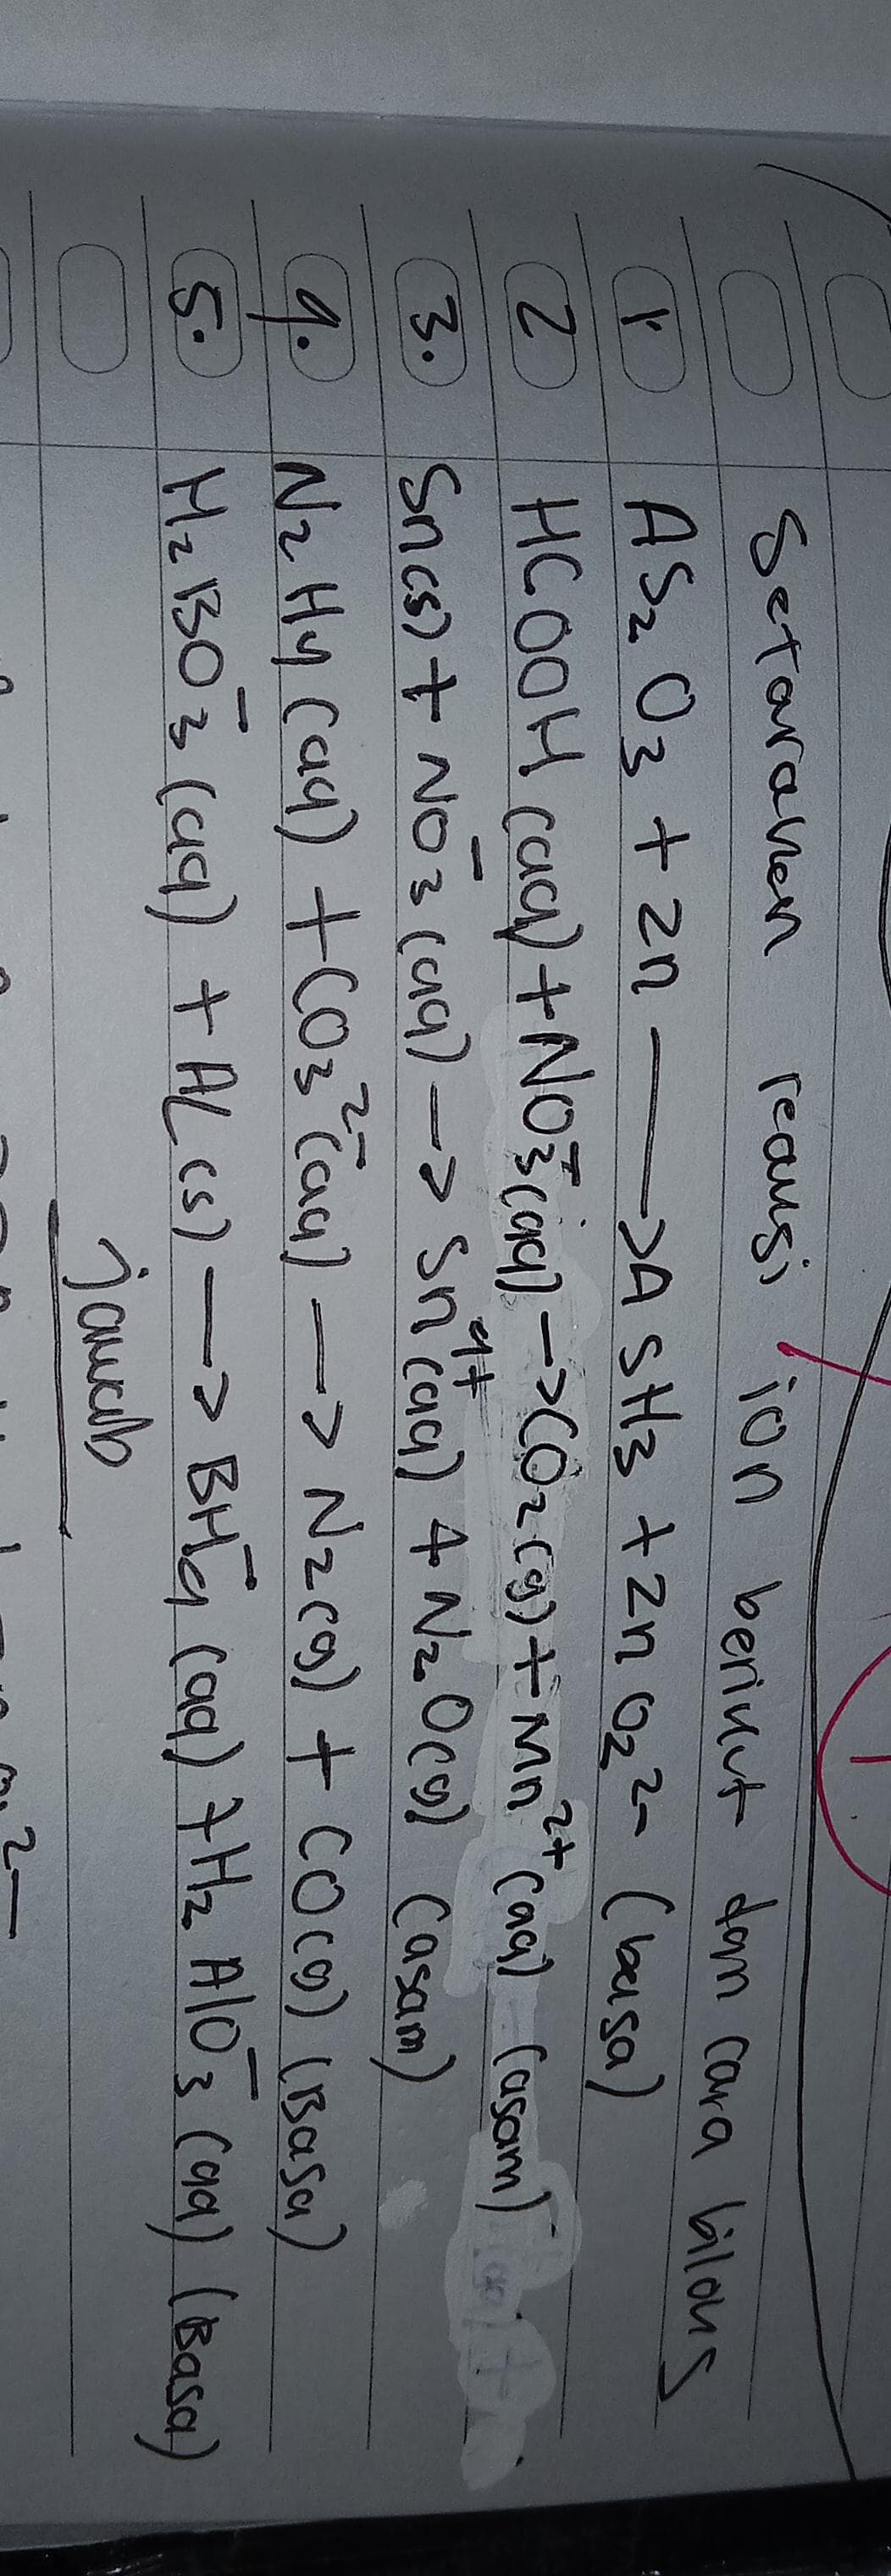 Setarakan reaksi ion berikut dan cara biloks
1. AS₂O₃ + Zn ⟶ ASH3 + ZnO₂²⁻ (basa)
2 HCOOH (aq) + NO₃⁻(aq) → CO₂(g) + Mn²⁺(aq) (asam)
3. Sn(s) + NO₃⁻(aq) → Sn⁴⁺(aq) + N₂O(g) (asam)
4. N₂H₄ (aq) + CO₃²⁻(aq) → N₂(g) + CO(g) (Basa)
5. H₂BO₃⁻(aq) + AL(s) → BH₄⁻(aq) + H₂AlO₃⁻(aq) (Basa)
jawab